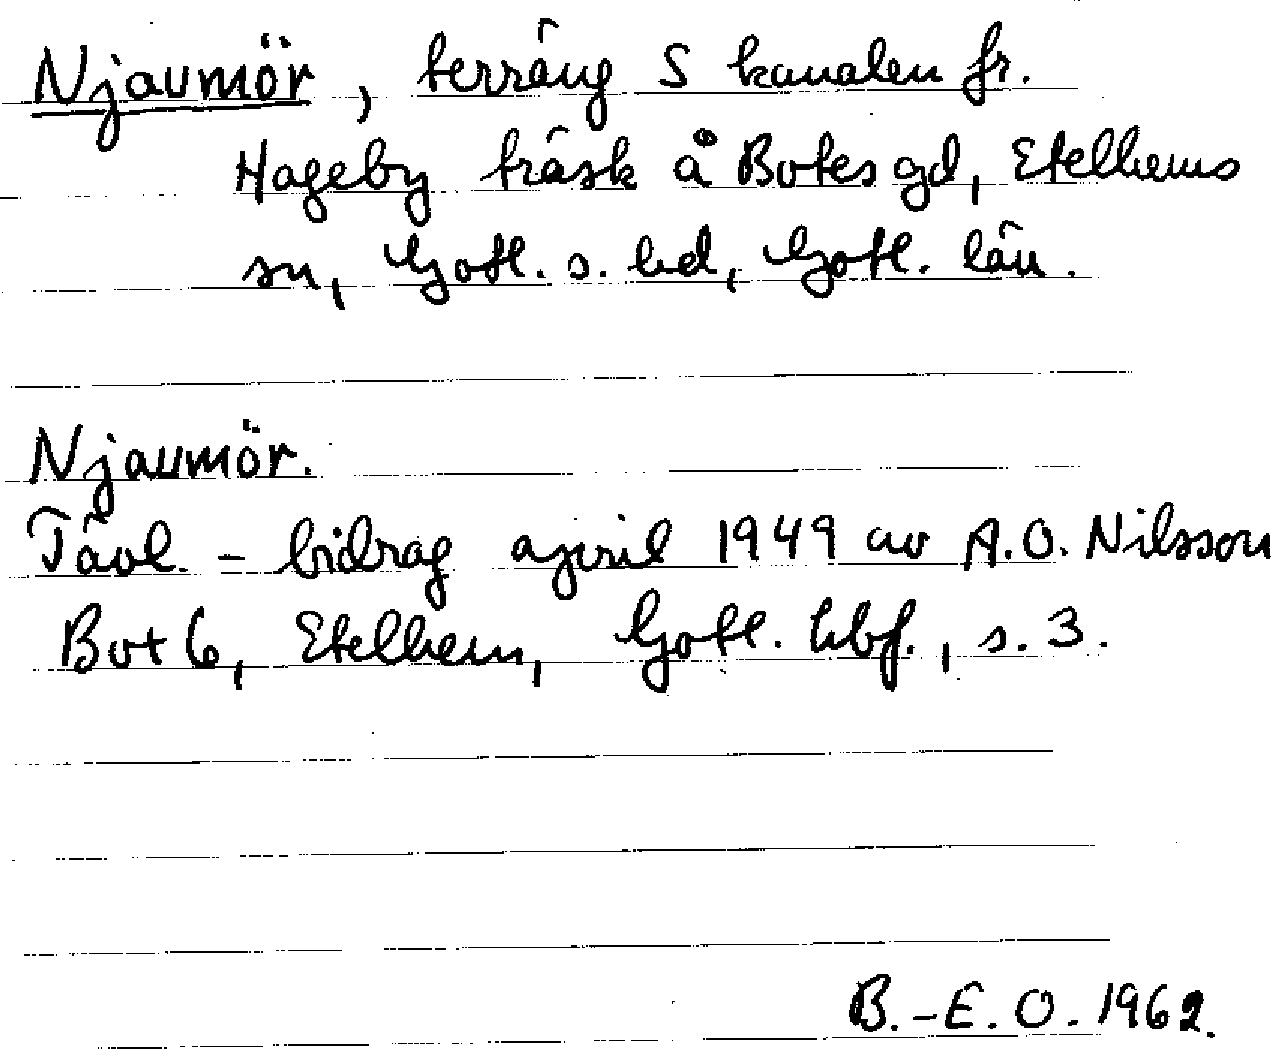 Njaumör, terräng S kanalen fr.
Hageby träsk å Botes gd, Etelhems
sn, Gotl. s. hd, Gotl. län.
Njaumör.
Tävl. - bidrag april 1949 av A.O. Nilsson
Bot 6, Etelhem, Gotl. hbf., s. 3.
B.-E.O. 1962.